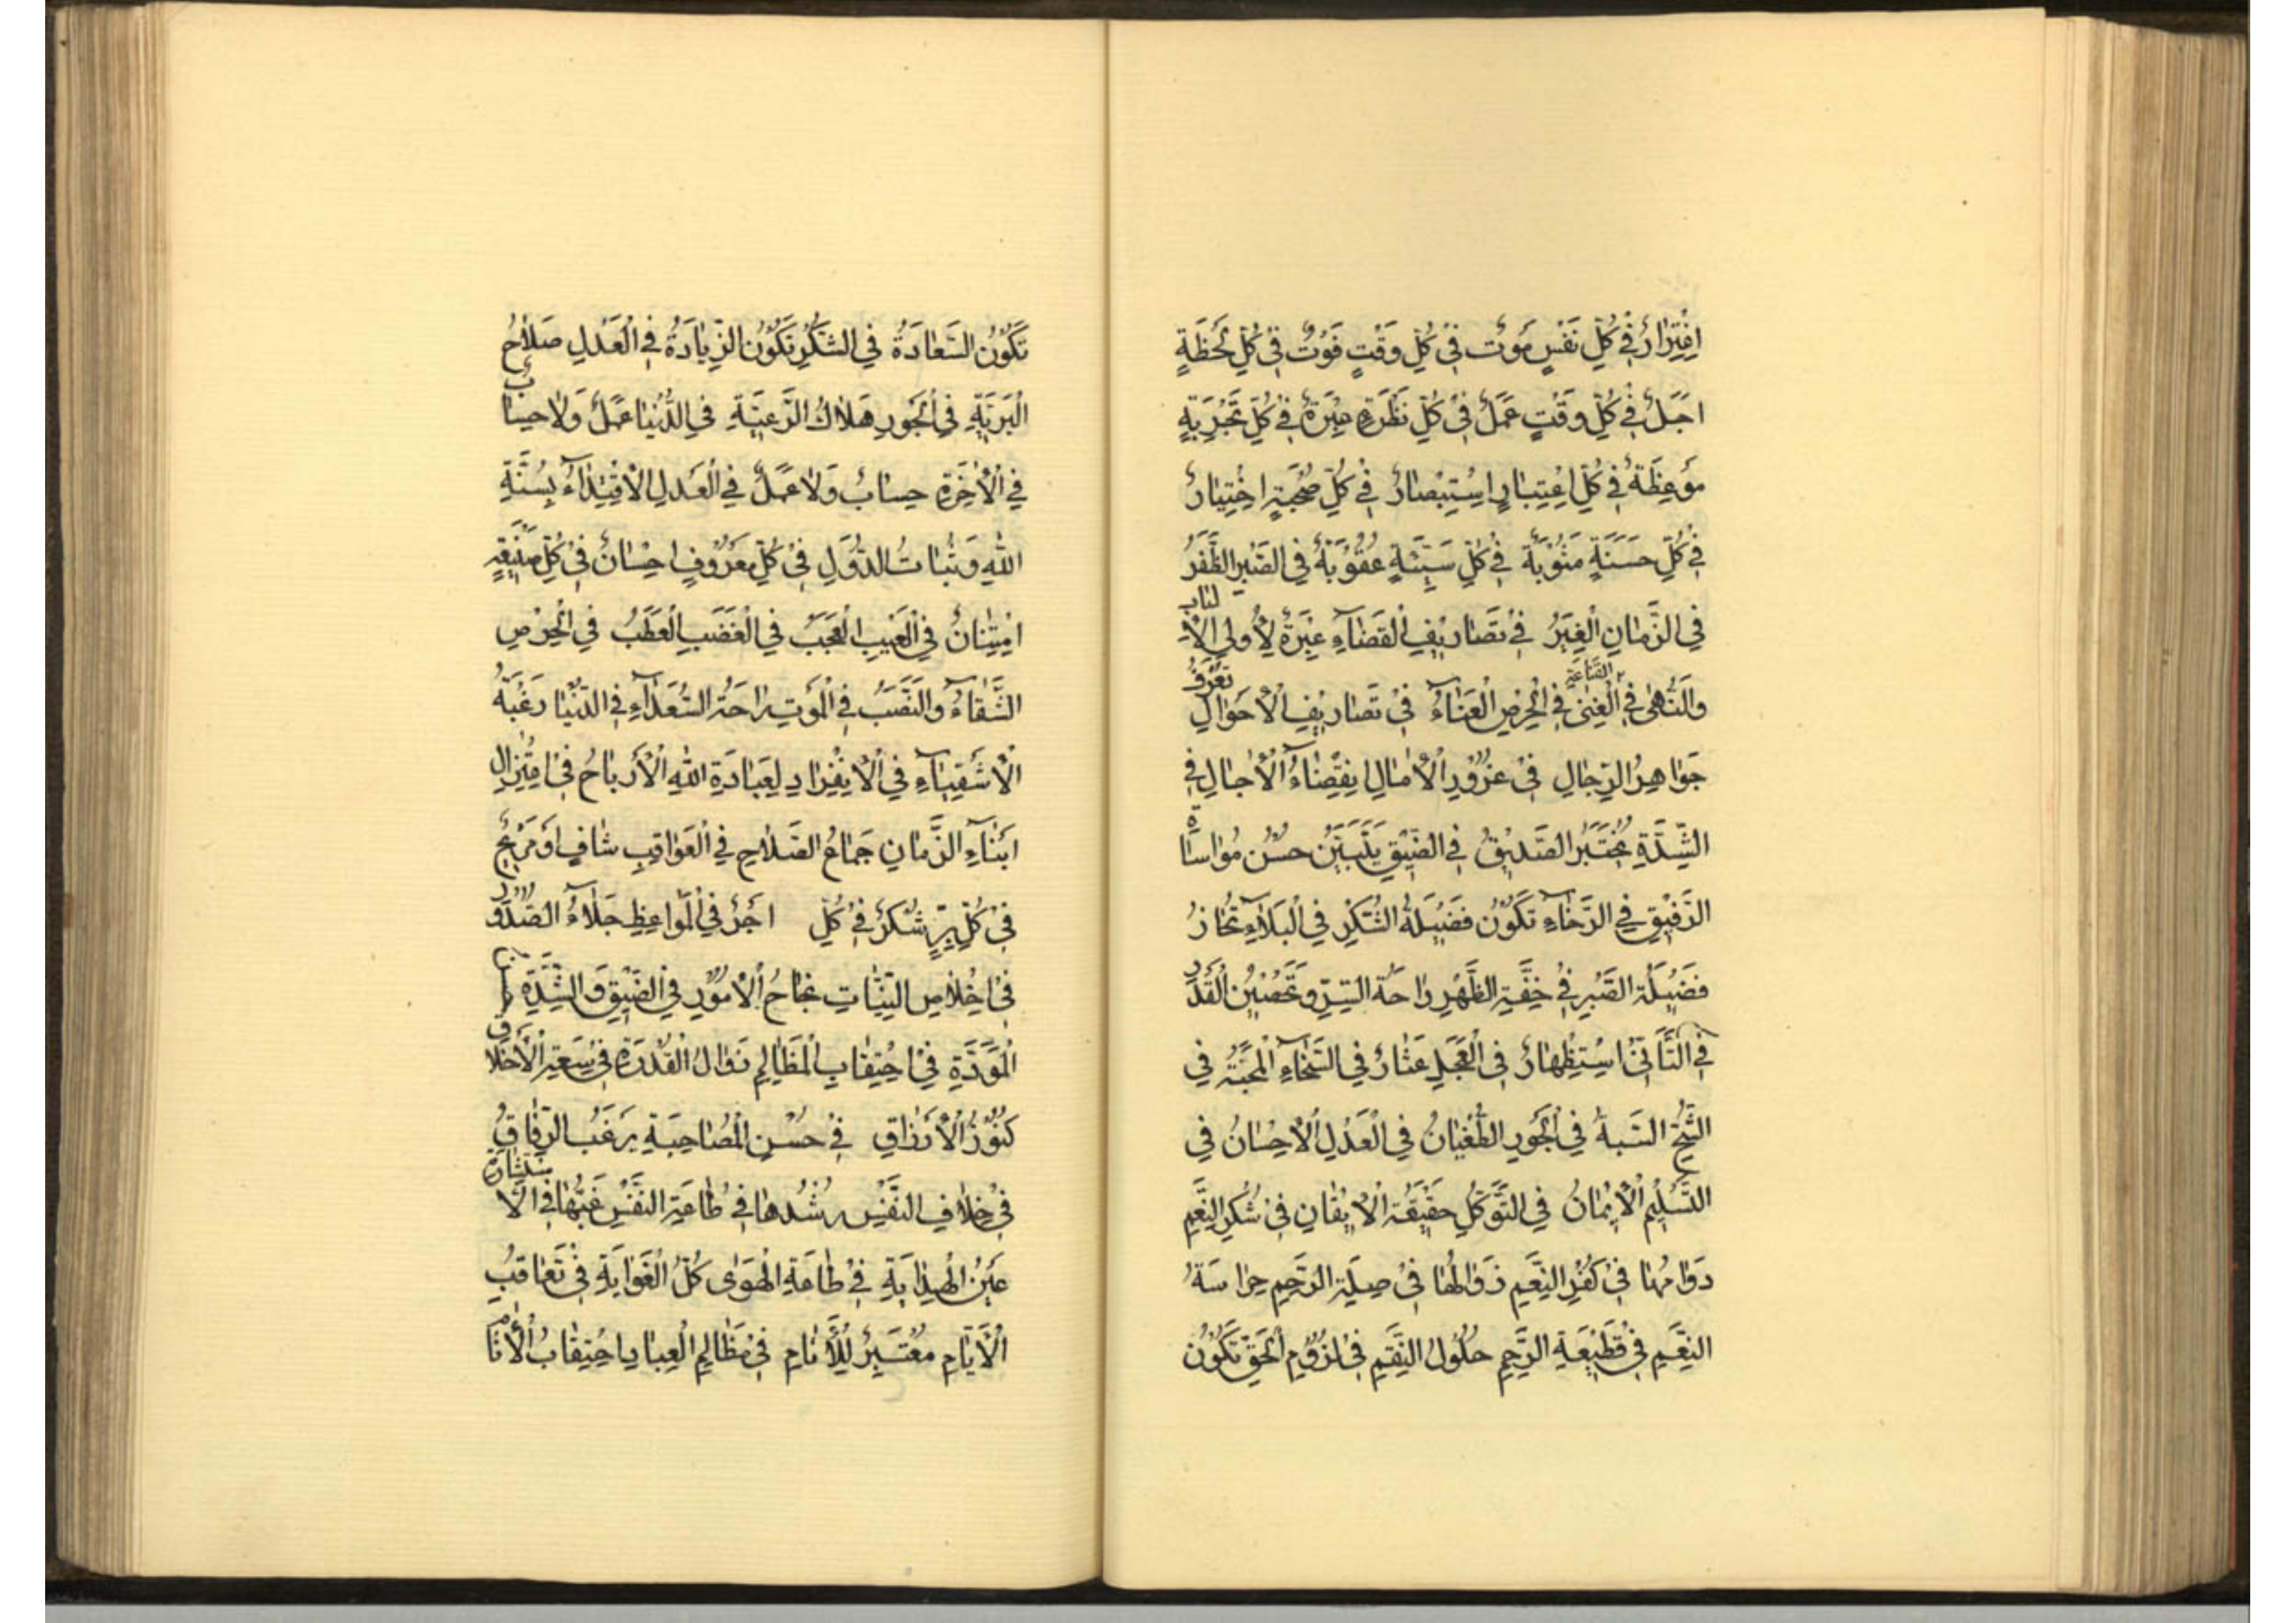 افْتِرَارٌ فِي كُلِّ نَفَسٍ مَوْتٌ فِي كُلِّ وَقْتٍ فَوْتٌ فِي كُلِّ لَحْظَةٍ
اَجَلٌ فِي كُلِّ وَقْتٍ عَمَلٌ فِي كُلِّ نَظْرَةٍ عِبْرَةٌ فِي كُلِّ تَجْرِبَةٍ
مَوْعِظَةٌ فِي كُلِّ اعْتِبَارٍ اسْتِبْصَارٌ فِي كُلِّ صُحْبَةٍ اخْتِيَارٌ
فِي كُلِّ حَسَنَةٍ مَثُوْبَةٌ فِي كُلِّ سَيِّئَةٍ عُقُوْبَةٌ فِي الصَّبْرِ الظَّفَرُ
فِي الزَّمَانِ الْغِيَرُ فِي تَصَارِيْفِ الْقَضَآءِ عِبْرَةٌ لِأُولِي الْاَلْبَابِ
وَالنُّهٰى فِي الْقَنَاعَةِ الْغِنٰى فِي الْحِرْصِ الْعَنَآءُ فِي تَصَارِيْفِ الْاَحْوَالِ تُعْرَفُ
جَوَاهِرُ الرِّجَالِ فِي غُرُوْرِ الْاٰمَالِ انْقِضَآءُ الْاٰجَالِ فِي
الشِّدَّةِ يُخْتَبَرُ الصَّدِيْقُ فِي الضِّيْقِ يَتَبَيَّنُ حُسْنُ مُوَاسَاةِ
الرَّفِيْقِ فِي الرَّخَآءِ تَكُوْنُ فَضِيْلَةُ الشُّكْرِ فِي الْبَلَآءِ تُحَازُ
فَضِيْلَةُ الصَّبْرِ فِي خِفَّةِ الظَّهْرِ رَاحَةُ السِّرِّ وَتَحْصِيْنُ الْقَدْرِ
فِي التَّاَنِّي اسْتِظْهَارٌ فِي الْعَجَلِ عَثَارٌ فِي السَّخَآءِ الْمَحَبَّةُ فِي
الشُّحِّ السَّبَةُ فِي الْجَوْرِ الطُّغْيَانُ فِي الْعَدْلِ الْاِحْسَانُ فِي
التَّسْلِيْمِ الْاِيْمَانُ فِي التَّوَكُّلِ حَقِيْقَةُ الْاِيْقَانِ فِي شُكْرِ النِّعَمِ
دَوَامُهَا فِي كُفْرِ النِّعَمِ زَوَالُهَا فِي صِلَةِ الرَّحِمِ حِرَاسَةُ
النِّعَمِ فِي قَطِيْعَةِ الرَّحِمِ حُلُوْلُ النِّقَمِ فِي لُزُوْمِ الْحَقِّ تَكُوْنُ
تَكُوْنُ السَّعَادَةُ فِي الشُّكْرِ تَكُوْنُ الزِّيَادَةُ فِي الْعَدْلِ صَلَاحُ
الْبَرِيَّةِ فِي الْجَوْرِ هَلَاكُ الرَّعِيَّةِ فِي الدُّنْيَا عَمَلٌ وَلَا حِسَابٌ
فِي الْاٰخِرَةِ حِسَابٌ وَلَا عَمَلٌ فِي الْعَدْلِ الْاِقْتِدَآءُ بِسُنَّةِ
اللّٰهِ وَثَبَاتُ الدُّوَلِ فِي كُلِّ مَعْرُوْفٍ اِحْسَانٌ فِي كُلِّ صَنِيْعَةٍ
امْتِنَانٌ فِي الْغَيْبِ الْعَجَبُ فِي الْغَضَبِ الْعَطَبُ فِي الْحِرْصِ
الشَّقَآءُ وَالنَّصَبُ فِي الْمَوْتِ رَاحَةُ السُّعَدَآءِ فِي الدُّنْيَا رَغْبَةُ
الْاَشْقِيَآءِ فِي الْاِنْفِرَادِ لِعِبَادَةِ اللّٰهِ الْاَرْبَاحُ فِي اعْتِزَالِ
اَبْنَآءِ الزَّمَانِ جِمَاعُ الصَّلَاحِ فِي الْعَوَاقِبِ شَافٍ اَوْ مُرِيْحٌ
فِي كُلِّ بِرٍّ شُكْرٌ فِي كُلِّ اَجْرٌ فِي الْمَوَاعِظِ جَلَآءُ الصُّدُوْرِ
فِي اِخْلَاصِ النِّيَّاتِ نَجَاحُ الْاُمُوْرِ فِي الضِّيْقِ وَالشِّدَّةِ
الْمَوَدَّةِ فِي احْتِقَابِ الْمَظَالِمِ زَوَالُ الْقُدْرَةِ فِي سَعَةِ الْاَخْلَاقِ
كُنُوْزُ الْاَرْزَاقِ فِي حُسْنِ الْمُصَاحَبَةِ يَرْغَبُ الرِّفَاقُ
فِي خِلَافِ النَّفْسِ رُشْدُهَا فِي طَاعَةِ النَّفْسِ غَيُّهَا فِي الْاِسْتِشَارَةِ
عَيْنُ الْهِدَايَةِ فِي طَاعَةِ الْهَوٰى كُلُّ الْغَوَايَةِ فِي تَعَاقُبِ
الْاَيَّامِ مُعْتَبَرٌ لِلْاَنَامِ فِي مَظَالِمِ الْعِبَادِ احْتِقَابُ الْاٰثَامِ